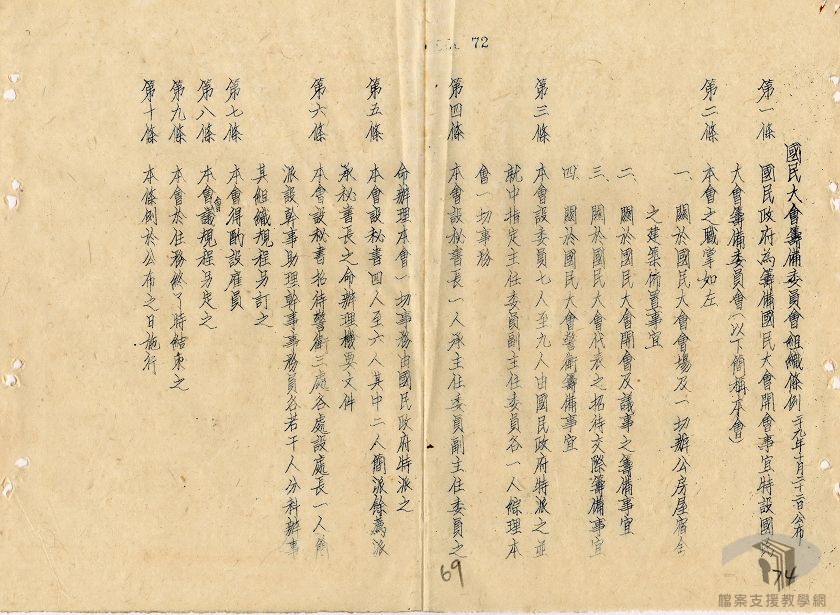 72
國民大會籌備委員會組織條例 二十九年 月二十二日公布
第一條 國民政府為籌備國民大會開會事宜特設國民
大會籌備委員會(以下簡稱本會)
第二條 本會之職掌如左
一、關於國民大會會場及一切辦公房屋宿舍
之建築佈置事宜
二、關於國民大會開會及議事之籌備事宜
三、關於國民大會代表之招待交際籌備事宜
四、關於國民大會警衛籌備事宜
第三條 本會設委員七人至九人由國民政府特派之並
就中指定主任委員副主任委員各一人綜理本
會一切事務
第四條 本會設秘書長一人承主任委員副主任委員之
命辦理本會一切事務由國民政府特派之
第五條 本會設秘書四人至六人其中二人簡派餘薦派
承秘書長之命辦理機要文件
第六條 本會設秘書招待警衛三處各處設處長一人簡
派設幹事助理幹事事務員各若干人分科辦事
其組織規程另訂之
第七條 本會得酌設雇員
第八條 本會會議規程另定之
第九條 本會於任務終了時結束之
第十條 本條例於公布之日施行
69
174
檔案支援教學網